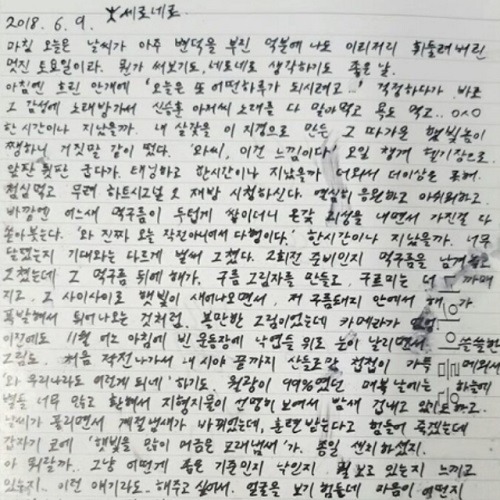 2018. 6. 9. *세로네로
마침 오늘은 날씨가 아주 변덕을 부린 덕분에 나도 이리저리 휘둘려버린
멋진 토요일이라. 뭔가 써보기도, 세로네로 생각하기도 좋은 날.
아침엔 흐린 안개에 '오늘은 또 어떤하루가 되시려고..' 걱정하다가 바로
그 감성에 노래방가서 신승훈 아저씨 노래를 다 말아먹고 욕도 먹고.. 0^0
한 시간이나 지났을까. 내 살갗을 이 지경으로 만든 그 따가운 햇빛놈이
쨍하니 거짓말 같이 떴다. '와씨, 이건 느낌이다' 오일 챙겨 헬기장으로
앞판 뒷판 굽다가. 태닝하고 한시간이나 지났을까 더워서 더이상은 못해.
점심먹고 무려 하트시그널 2 재방 시청하신다. 열심히 응원하고 아쉬워하고.
바깥엔 어느새 먹구름이 두텁게 쌓이더니 온갖 괴성을 내면서 가진걸 다
쏟아붓는다. '와 진짜 오늘 작전아니어서 다행이다.' 한시간이나 지났을까. 너무
담백했는지 기대와는 다르게 벌써 그쳤다. 2회전 준비인지 먹구름을 남겨놓고
그쳤는데 그 먹구름 뒤에 해가. 구름 그림자를 만들고, 구르미는 더 까매
지고, 그 사이사이로 햇빛이 새어나오면서, 저 구름돼지 안에서 해가
폭발해서 튀어나오는 것처럼. 볼만한 그림이었는데 카메라가 없어
이럴때도 11월 어느 아침에 빈 운동장에 낙엽들 위로 눈이 날리면서 쓸쓸한
그림도. 처음 작전나가서 내 시야 끝까지 산들로만 첩첩이 가득 메워서
'와 우리나라도 이렇게 되네' 하기도. 월광이 99%였던 매복 날에는 하늘에
별들 너무 많고 환해서 지형지물이 선명히 보여서 밤새 겁내고 있기도하고.
날씨가 풀리면서 계절냄새가 바뀌었는데, 훈련받는다고 힘들어 죽겠는데
갑자기 코에 '햇빛을 많이 머금은 모래냄새'가. 종일 센치하셨지.
아 뭐랄까. 그냥 어떻게 좋은 기준인지 날인지. 뭘 보고 있는지 느끼고
있는지.. 이런 얘기라도.. 해주고 싶어서. 얼굴을 보기 힘든데 마음이 어떤지